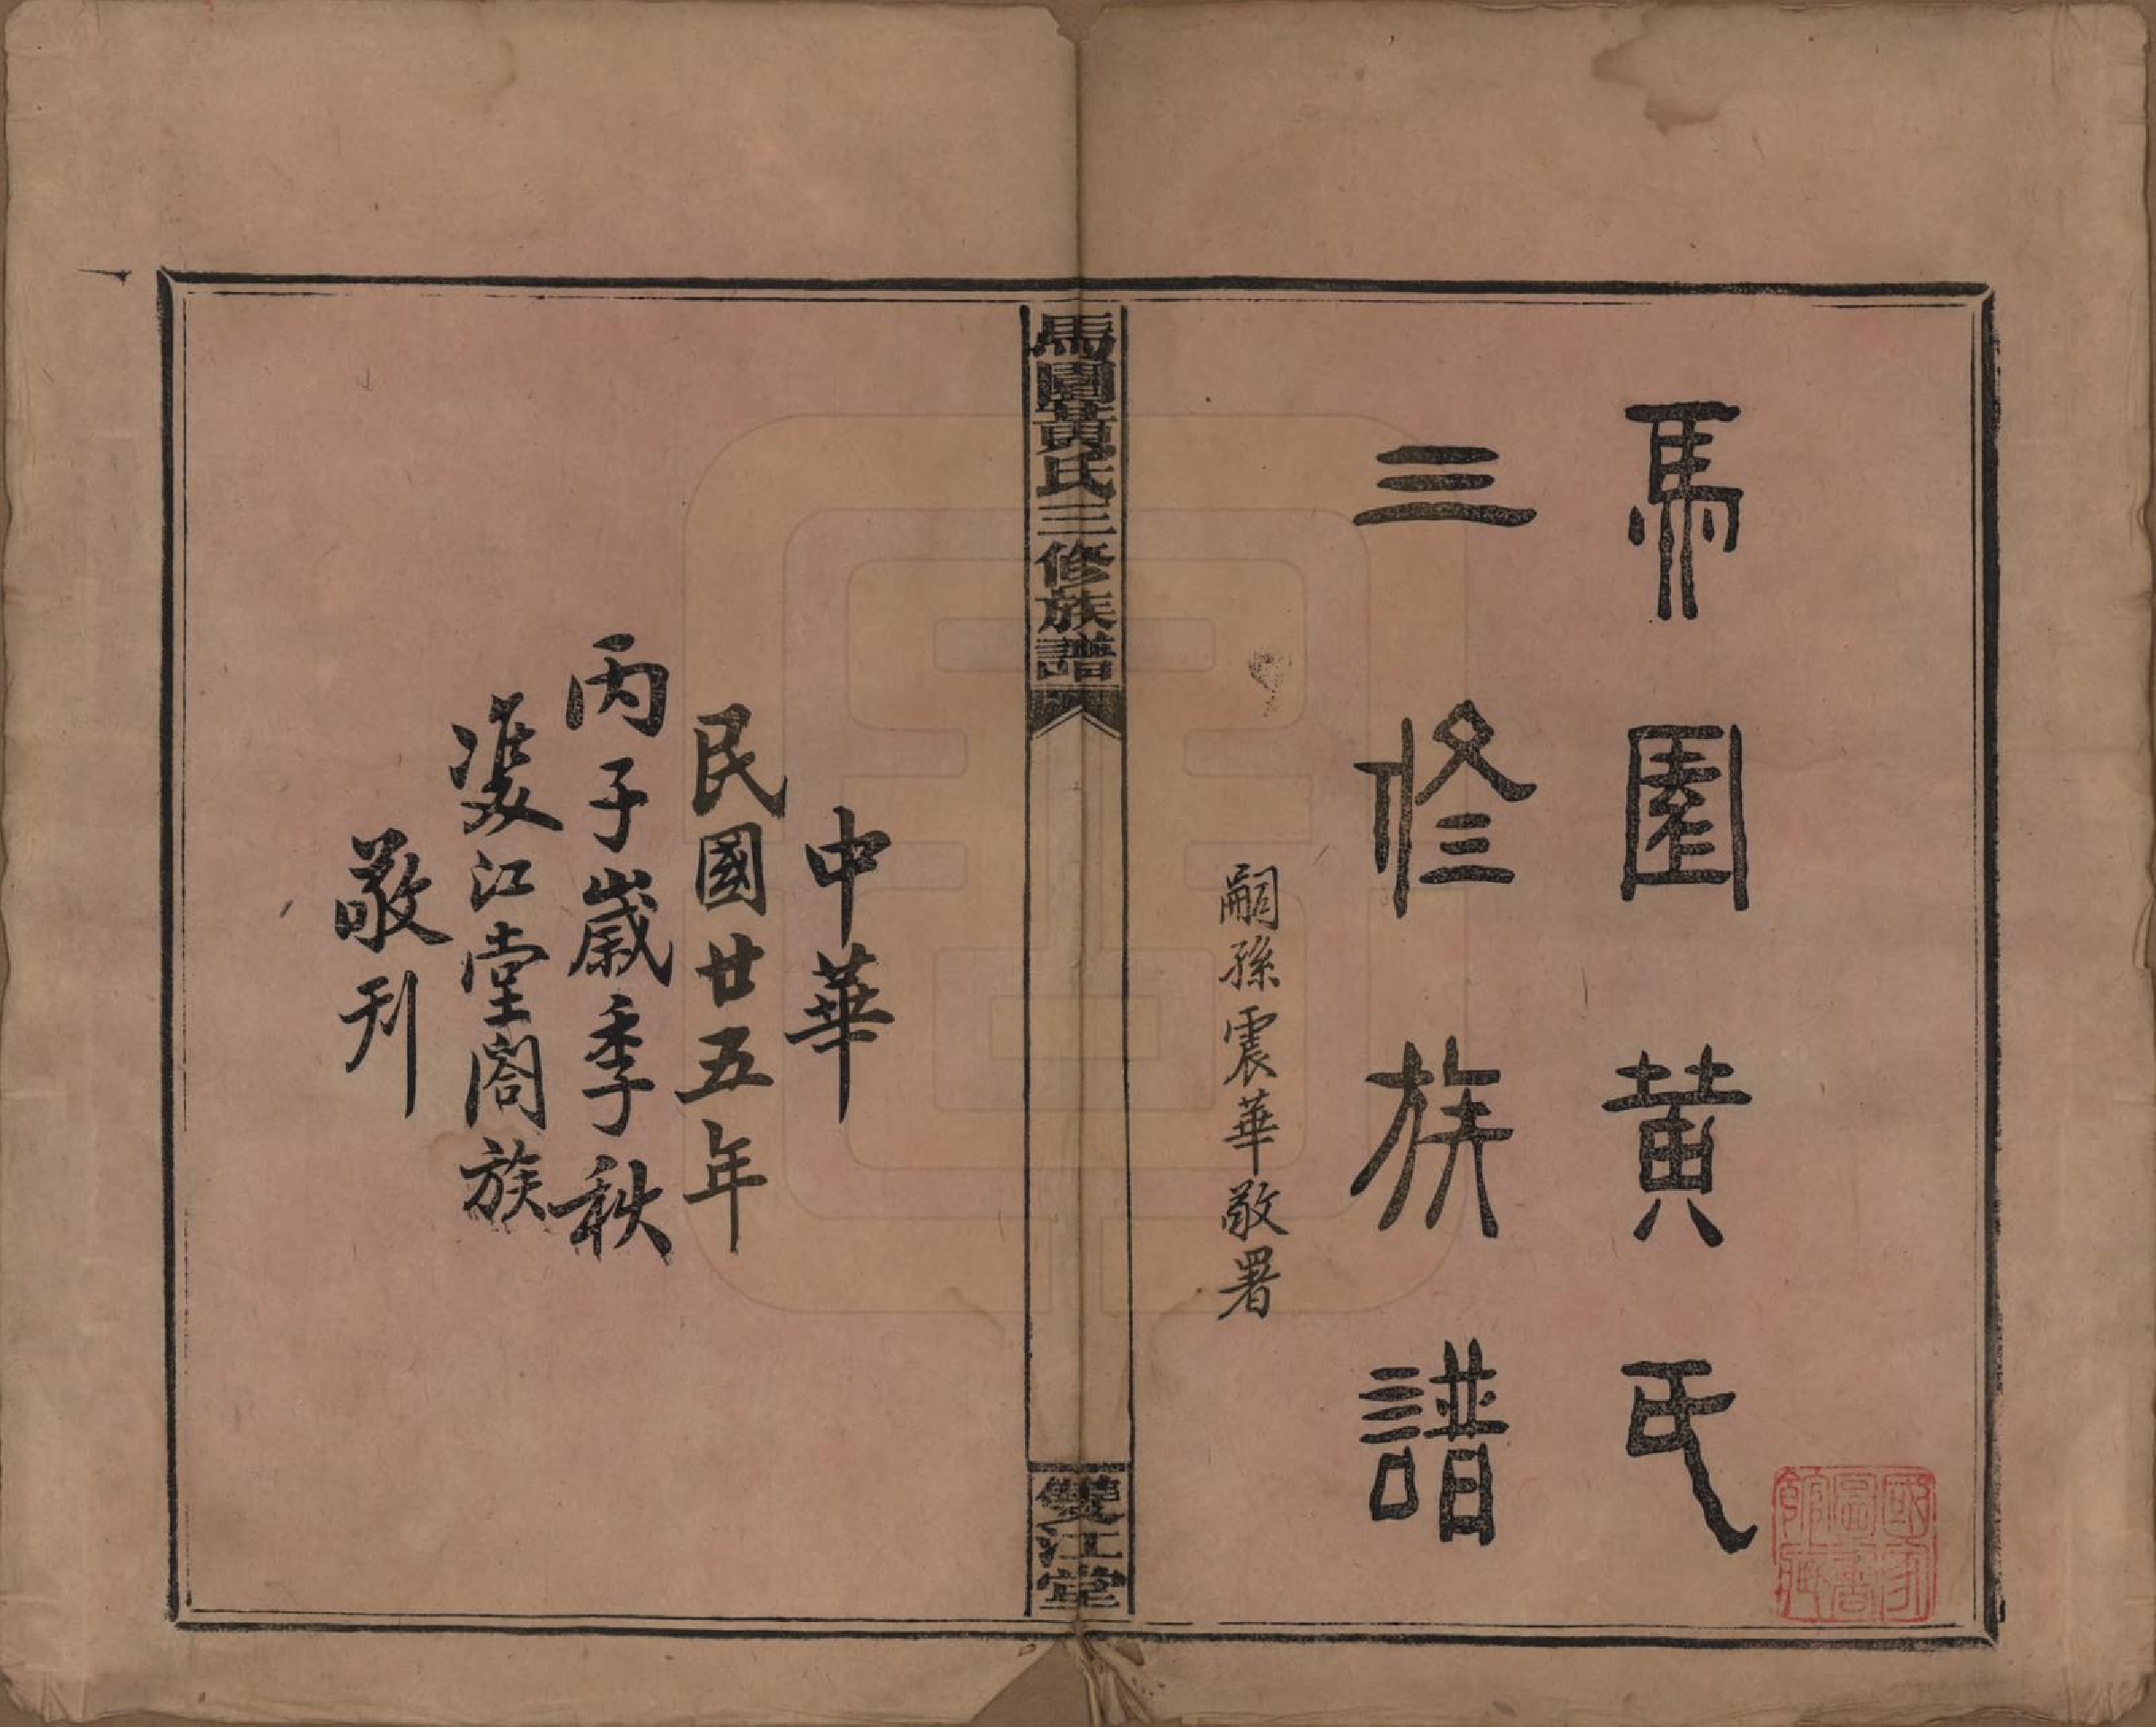 馬園黄氏
三修族譜
嗣孫震華敬署
馬園黃氏三修族譜
雙江堂
中華
民國廿五年
丙子歲季秋
雙江堂閤族
敬刊
國家圖書館藏